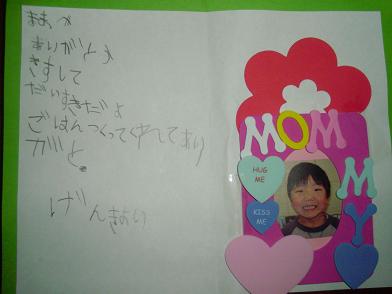 ままへ
ありがとう
きすして
だいすきだよ
ごはんつくってくれてあり
がと。
げんきより
MOMMY
HUG
ME
KISS
ME